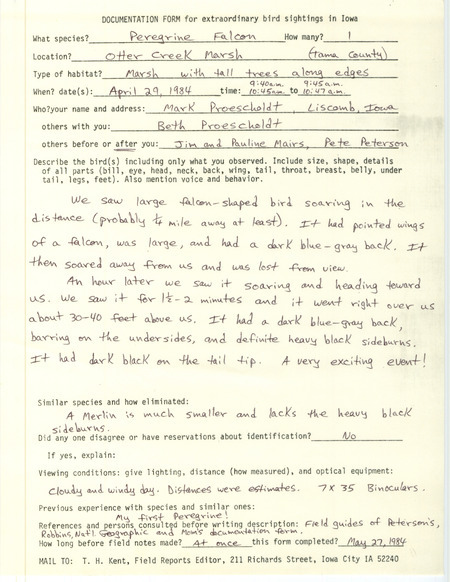 DOCUMENTATION FORM for extraordinary bird sightings in Iowa
What species? Peregrine Falcon How many? 1
Location? Otter Creek Marsh (Tama County)
Type of habitat? Marsh with tall trees along edges
9:40a.m. 9:45a.m.
When? date(s): April 29, 1984 time: 10:45am to 10:47a.m.
Who?your name and address: Mark Proescholdt, Liscomb, Iowa
others with you: Beth Proescholdt
others before or after you: Jim and Pauline Mairs, Pete Peterson
Describe the bird(s) including only what you observed. Include size, shape, details
of all parts (bill, eye, head, neck, back, wing, tail, throat, breast, belly, under
tail, legs, feet). Also mention voice and behavior.
We saw large falcon-shaped bird soaring in the
distance (probably 1/4 mile away at least). It had pointed wings
of a falcon, was large, and had a dark blue-gray back. It
then soared away from us and was lost from view.
An hour later we saw it soaring and heading toward
us. We saw it for 1 1/2-2 minutes and it went right over us
about 30-40 feet above us. It had a dark blue-gray back,
barring on the undersides, and definite heavy black sideburns.
It had dark black on the tail tip. A very exciting event!
Similar species and how eliminated:
A Merlin is much smaller and lacks the heavy black
sideburns.
Did any one disagree or have reservations about identification? No
If yes, explain:
Viewing conditions: give lighting, distance (how measured), and optical equipment:
Cloudy and windy day. Distances were estimates. 7X35 Binoculars.
Previous experience with species and similar ones:
My first Peregrine!
References and persons consulted before writing description: Field guides of Peterson's,
Robbins, Nat'l Geographic and Mom's documentation form.
How long before field notes made? At once this form completed? May 27, 1984
MAIL TO: T. H. Kent, Field Reports Editor, 211 Richards Street, Iowa City IA 52240